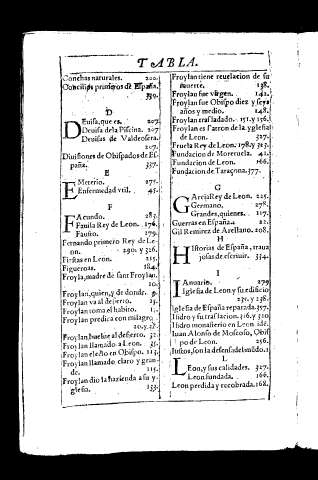 TABLA.
Conchas naturales. 200.
Concilios primeros de España.
359.
D
Deuisa, que es. 207.
Deuisa de la Piscina. 207.
Deuisas de Valdeosera.
207.
Diuisiones de Obispados de Es-
paña. 357.
E
Emeterio. 275.
Enfermedad vtil. 45.
F
Facundo. 283.
Fauila Rey de Leon. 176.
Fausto. 279.
Fernando primero Rey de Le-
on. 290. y 326.
Fiestas en Leon. 215.
Figueroas. 184.
Froyla, madre de sant Froylan.
10.
Froylan, quien, y de donde. 9.
Froylan va al desierto. 23.
Froylan toma el habito. 15.
Froylan predica con milagro.
20. y. 28.
Froylan buelue al desierto. 32.
Froylan llamado a Leon. 35.
Froylan electo en Obispo. 113.
Froylan llamado claro y gran-
de. 115.
Froylan dio la hazienda a su y-
glesia. 133.
Froylan tiene reuelacion de su
muerte. 138.
Froylan fue virgen. 142.
Froylan fue Obispo diez y seys
años y medio. 148.
Froylan trasladado. 151. y 156.
Froylan es Patron de la yglesia
de Leon. 327.
Fruela Rey de Leon. 178. y 323.
Fundacion de Moreruela. 42.
Fundacion de Leon. 166.
Fundacion de Taraçona. 377.
G
Garcia Rey de Leon. 225.
Germano. 278.
Grandes, quienes. 117.
Guerras en España. 22.
Gil Ramirez de Arellano. 208.
H
Historias de España, traua
josas de escriuir. 354.
I
Ianuario. 279
Iglesia de Leon y su edificio
231. y 238.
Iglesia de España reparada. 357.
Isidro y su traslacion. 316. y 320
Isidro monasterio en Leon
Iuan Alonso de Moscoso, Obis
po de Leon. 256.
Iustos, son la defensa del mūdo. 1
L
Leon, y sus calidades. 327.
Leon fundada. 166.
Leon perdida y recobrada. 168.